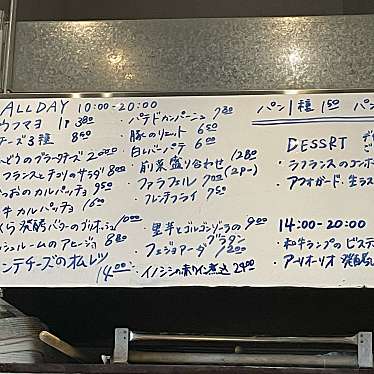 ALLDAY 10:00-20:00
ウフマヨ 1P 380
チーズ3種 850
ぶどうのブラータチーズ
フランスとチリのサラダ 8
つおのカルパッチョ 950
牛カルパッチョ 1600
くら発酵バターのブリオッシュ 1000
シュルームのアヒージョ 880
ンテチーズのオムレツ 1400
・パテドカンパーニュ 780
・豚のリエット 650
・白レバーパテ 600
・前菜盛り合わせ 1280 (2P~)
・ファラフェル 700
・フレンチフライ 750
・里芋とゴルゴンゾーラのグラタン 900
・フェジョアーダ 1200
・イノシシの赤ワイン煮込 2400
パン1種 150 パン
DESSRT
・ラフランスのコンポー
・アフォガード・生ラス
14:00-20:00
・和牛ランプのビステ
・アーリオーリオ 発酵